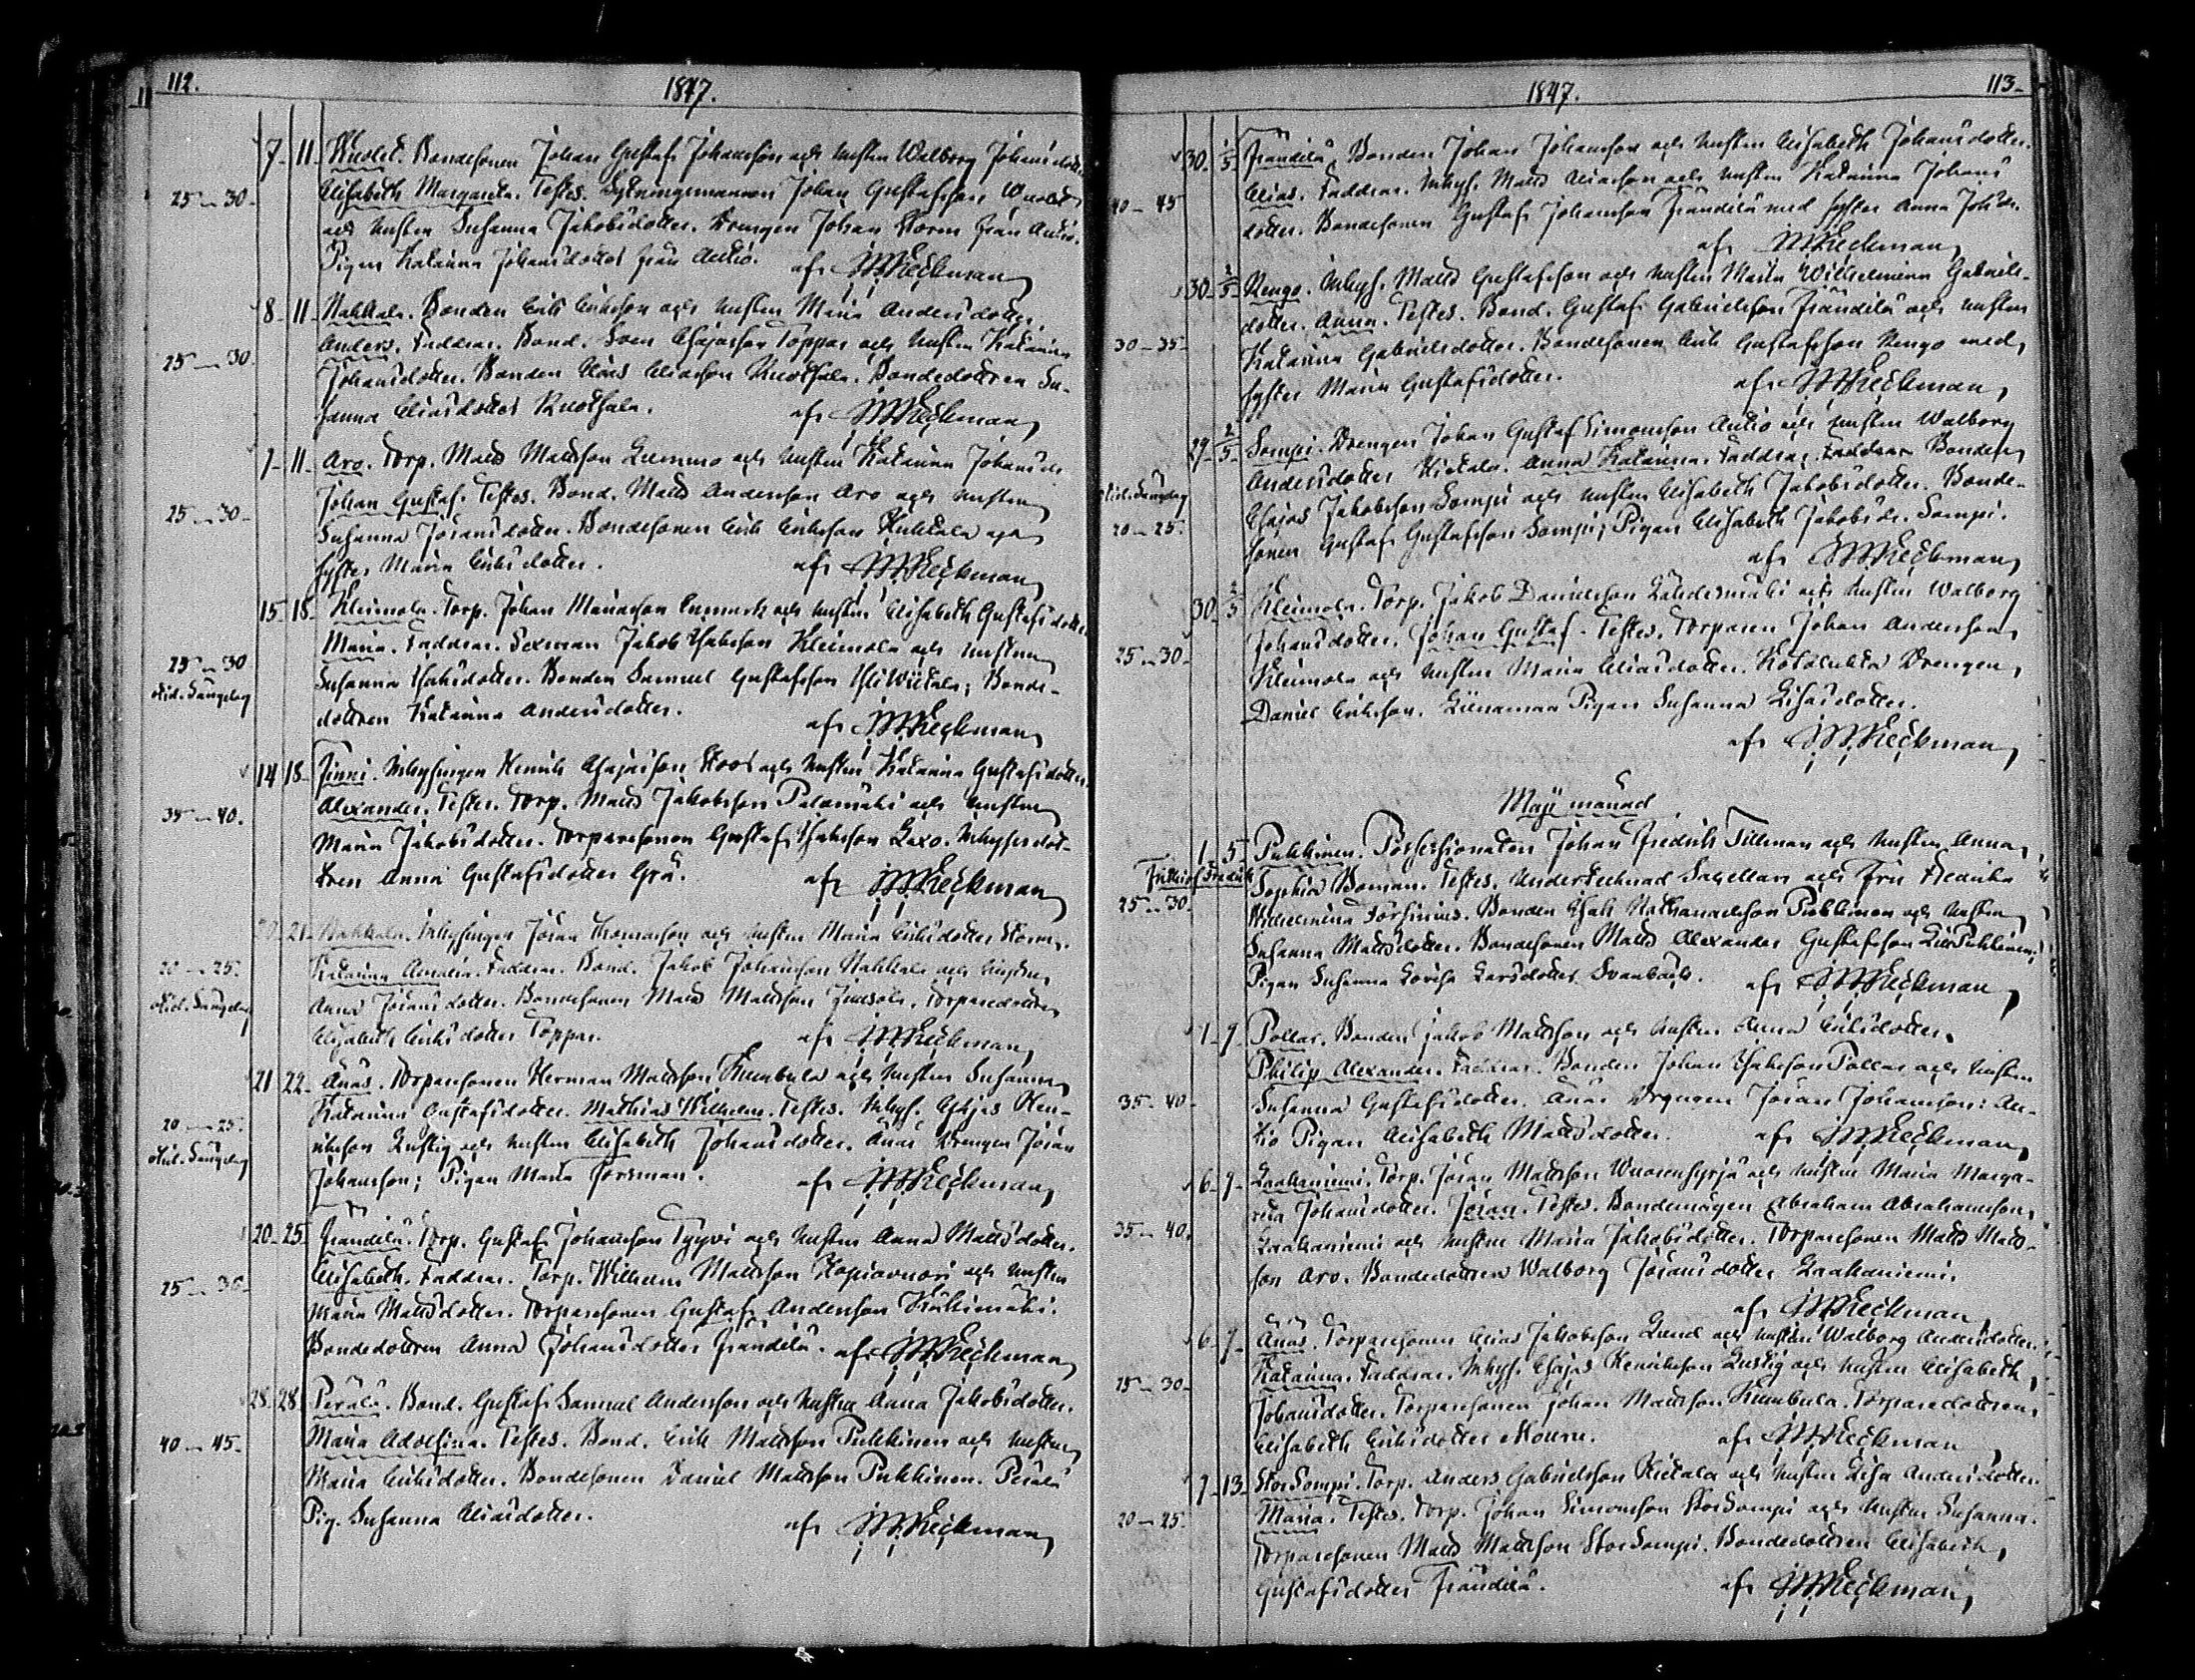 112.
1847.
7. 11. Bondesonen Johan Gustaf Johansson och hustrun Walborg Johansdotter
Elisabeth Margareta. Testes. Johan Gustafsson
25–30.
och hustrun Susanna Jakobsdotter. Drengen Johan Storm från Autio.
Pigan Katarina Johansdotter från Autio. af M.Reckman
8. 11. Nahkala. Bonden Erik Eriksson och hustrun Maria Andersdotter.
Anders. Faddrar. Bond. Sven Esajasson Toppar och hustrun Katarina
25–30.
Johansdotter. Bonden Elias Eliasson Bondedottren Su-
sanna Eliasdotter af M.Reckman
7. 11. Aro. Torp. Matts Mattsson och hustrun Katarina Johansdr
Johan Gustaf. Testes. Bond. Matts Andersson Aro och hustrun
25–30.
Susanna Jöransdotter. Bondesonen Erik Eriksson
syster Maria Eriksdotter. af M.Reckman
15. 18. Kleimola. Torp. Johan och hustrun Elisabeth Gustafsdotter
Maria. Faddrar. Sexman Jakob Isaksson Kleimola och hustrun
25–30
Susanna Isaksdotter. Bonden Samuel Gustafsson Bonde-
dottren Katarina Andersdotter. af M.Reckman
14 18. Inhysingen Henrik Esajasson och hustrun Katarina Gustafsdotter
Alexander. Testes. Torp. Matts Jakobsson Palomäki och hustrun
35–40.
Maria Jakobsdotter. Torparesonen Gustaf Isaksson Inhysesdot-
tren Anna Gustafsdotter Grå. af M.Reckman
21. Nahkala. Inhysingen Jöran Thomasson och hustrun Maria Eriksdotter Storm.
Katarina Amalia. Faddrar. Bond. Jakob Johansson Nahkala och hustrun
20–25.
Anna Jöransdotter. Bondesonen Matts Mattsson Torparedottren
Elisabeth Eriksdotter Toppar. af M.Reckman
21. 22. Änäs. Torparesonen Herman Mattsson Kumbula och hustrun Susanna
Katarina Gustafsdotter. Mathias Wilhelm. Testes. Inhys. Esajas Hen-
20–25.
riksson Lustig och hustrun Elisabeth Johansdotter. Änäs Drengen Jöran
Johansson; Pigan Maria Forsman. af M.Reckman
20. 25. Frändilä. Torp. Gustaf Johansson Tyyvi och hustrun Anna Mattsdotter.
Elisabeth. Faddrar. Torp. Wilhelm Mattsson och hustrun
25–30.
Maria Mattsdotter. Torparesonen Gustaf Andersson
Bondedottren Anna Johansdotter Frändilä. af M.Reckman
28. 28. Perälä. Bond. Gustaf Samuel Andersson och hustrun Anna Jakobsdotter.
Maria Adolfina. Testes. Bond. Erik Mattsson Pukkinen och hustrun
40–45.
Maria Eriksdotter. Bondesonen Daniel Mattsson Pukkinen. Perälä
Pig. Susanna Eliasdotter. af M.Reckman
1847.
113.
30. 1/5. Frändilä. Bonden Johan Johansson och hustrun Elisabeth Johansdotter.
Elias. Faddrar. Inhys. Matts Eliasson och hustrun Katarina Johans
40–45
dotter. Bondesonen Gustaf Johansson Frändilä med syster Anna Johsdr.
af M.Reckman
30. 2/5. Rengo. Inhys. Matts Gustafsson och hustrun Maria Wilhelmina Gabriels-
dotter. Anna. Testes. Bond. Gustaf Gabrielsson Frändilä och hustrun
30–35.
Katarina Gabrielsdotter. Bondesonen Erik Gustafsson Rengo med
syster Maria Gustafsdotter. af M.Reckman
29. 2/5. Sompi. Drengen Johan Gustaf Simonsson Autio och hustrun Walborg
Andersdotter Anna Katarina. Faddrar. Faddrar Bonden
Esajas Jakobsson Sompi och hustrun Elisabeth Jakobsdotter. Bonde-
20–25.
sonen Gustaf Gustafsson Sompi; Pigan Elisabeth Jakobsdr. Sompi.
af M.Reckman
30. 2/5 Kleimola. Torp. Jakob Danielsson och hustrun Walborg
Johansdotter. Johan Gustaf. Testes. Torparen Johan Andersson
25–30.
Kleimola och hustrun Maria Eliasdotter. Drengen
Daniel Eriksson. Pigan Susanna
af M.Reckman
Maji månad
1. 5. Pukkinen. Possessionaten Johan Fredrik Tillman och hustrun Anna
Frithiof Fredrik
Sophia Boman. Testes. Undertecknad Sacellan och Fru Fredrika
25–30.
Wilhelmina Forsinius. Bonden Isak Nathanaelsson Pukkinen och hustrun
Susanna Mattsdotter. Bondesonen Matts Alexander Gustafsson
Pigan Susanna Lovisa Larsdotter Svanbäck. af M.Reckman
1. 9. Pollar. Bonden Jakob Mattsson och hustrun Anna Eriksdotter.
Philip Alexander. Faddrar. Bonden Johan Isaksson Pollar och hustrun
35–40.
Susanna Gustafsdotter. Änäs Drengen Jöran Johansson: Au-
tio Pigan Elisabeth Mattsdotter. af M.Reckman
6. 9. Laakaniemi. Torp. Jöran Mattsson och hustrun Maria Marga-
reta Johansdotter. Jöran. Testes. Bondemågen Abraham Abrahamsson
35–40.
Laakaniemi och hustrun Maria Jakobsdotter. Torparesonen Matts Matts-
son Aro. Bondedottren Walborg Jöransdotter Laakaniemi.
af M.Reckman
6. 9. Änäs. Torparesonen Elias Jakobsson Lund och hustrun Walborg Andersdotter
Katarina. Faddrar. Inhys. Esajas Henriksson Lustig och hustrun Elisabeth
25–30.
Johansdotter. Torparesonen Johan Mattsson Kumbula. Torparedottren
Elisabeth Eriksdotter af M.Reckman
7. 13. StorSompi. Torp. Anders Gabrielsson och hustrun Lisa Andersdotter.
Maria. Testes. Torp. Johan Simonsson StorSompi och hustrun Susanna.
20–25.
Torparesonen Matts Mattsson StorSompi. Bondedottren Elisabeth
Gustafsdotter Frändilä. af M.Reckman